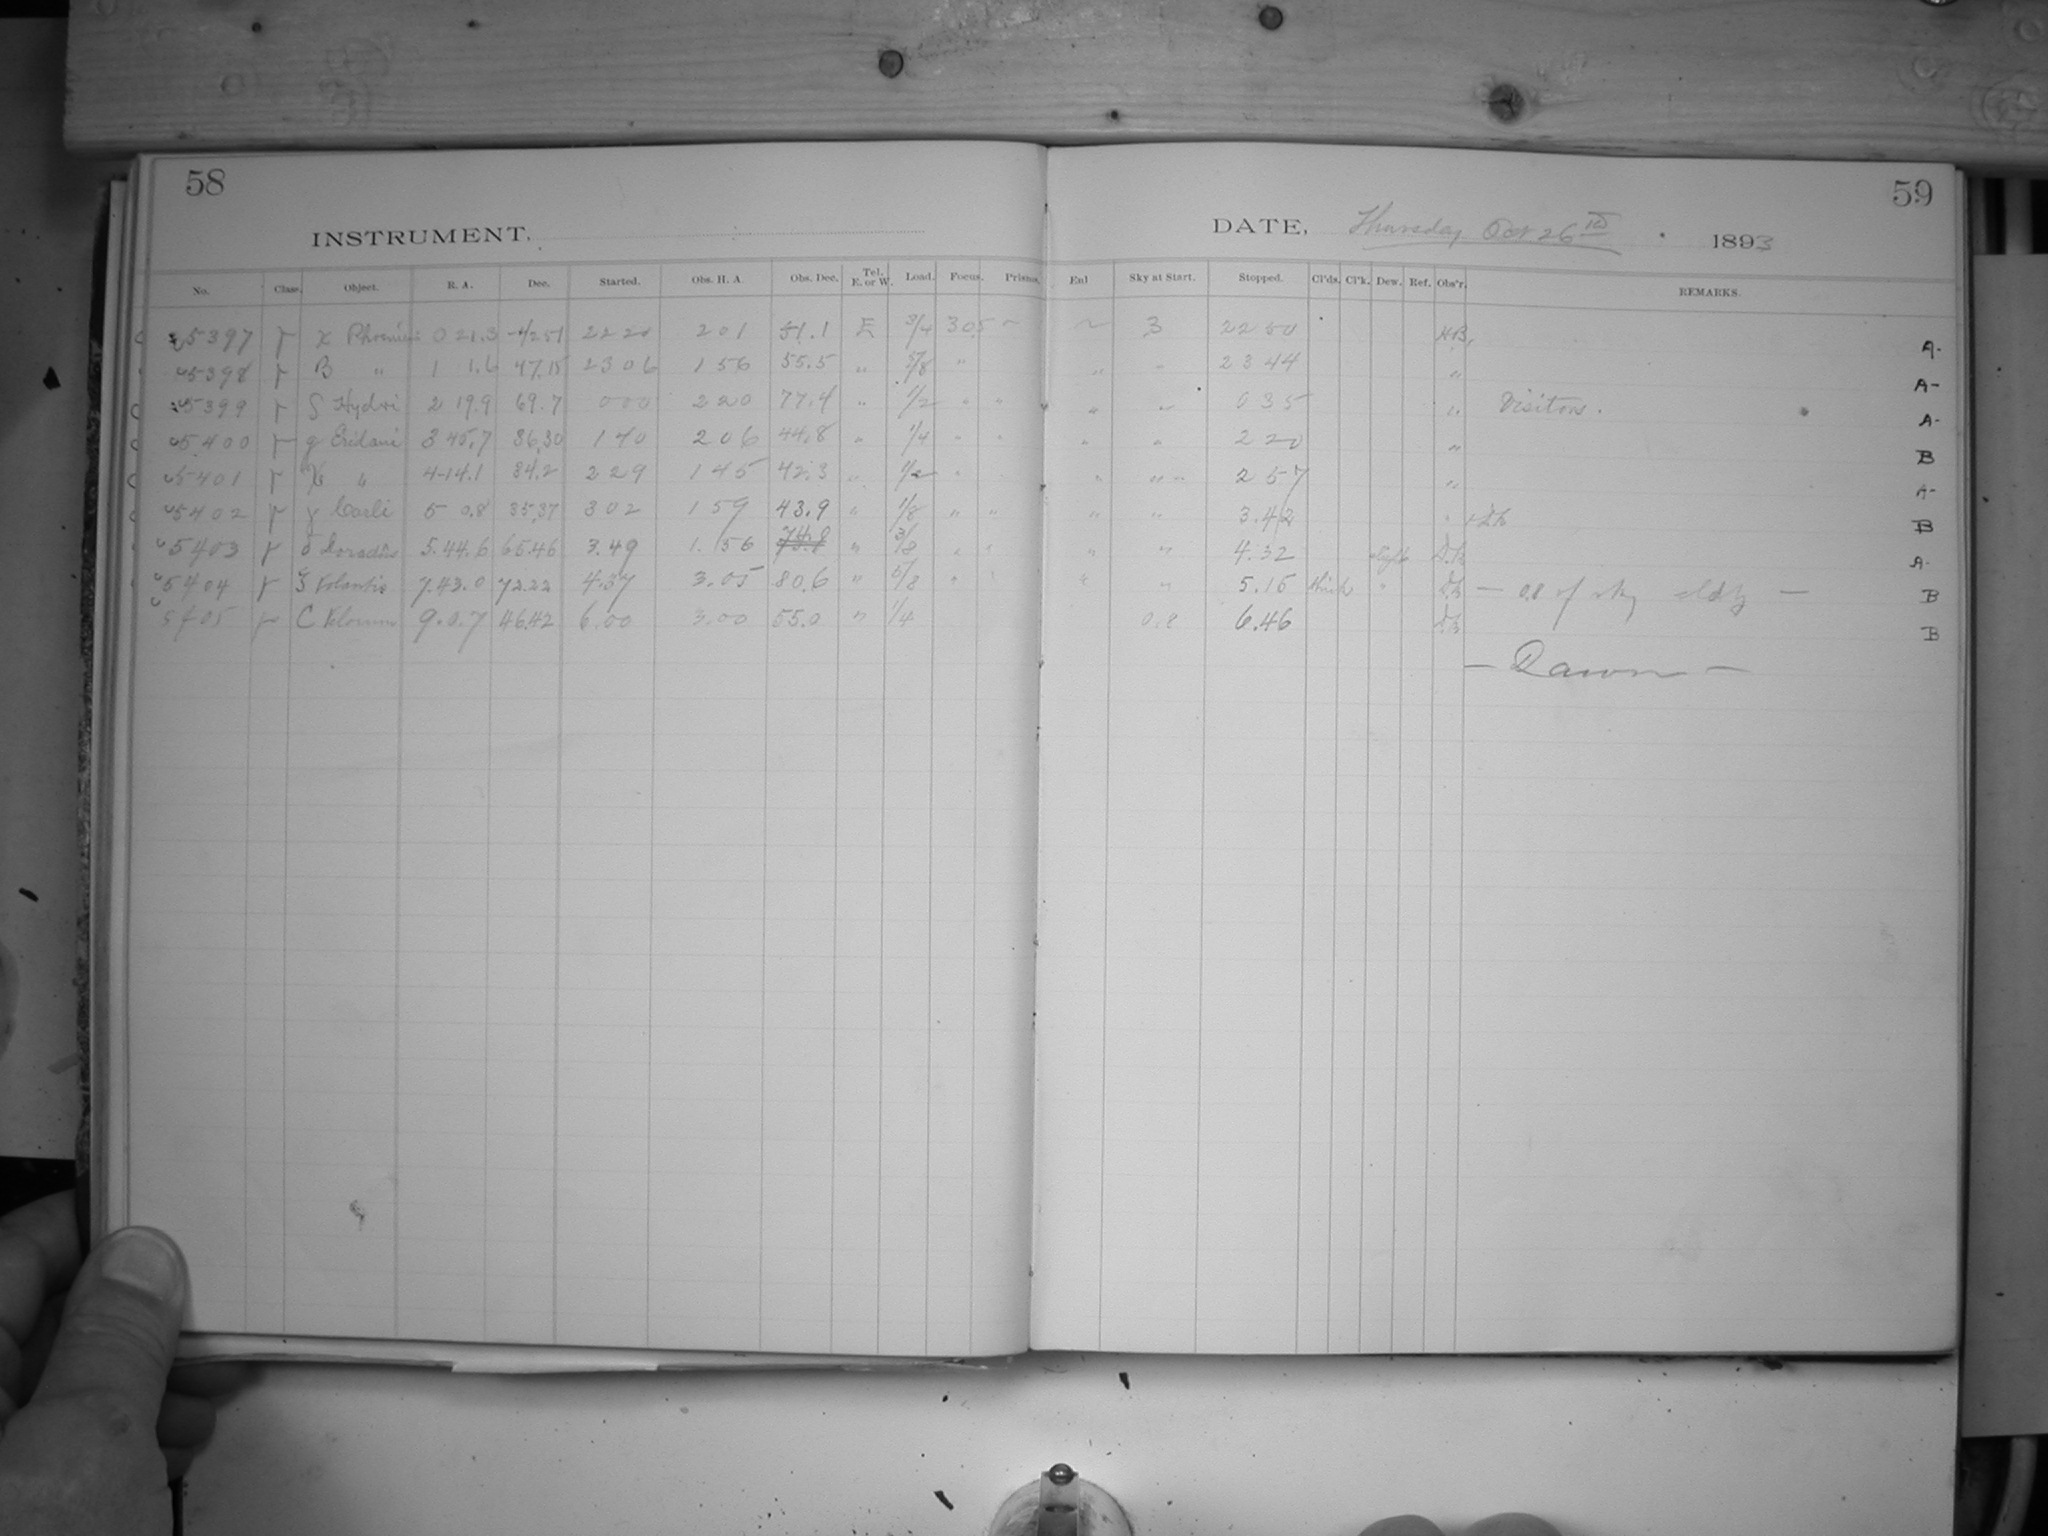 58
INSTRUMENT.
No. Class. Object. R. A. Dec. Started. Obs. H. A. Obs. Dec. Tel. E. or W. Load. Focus. Prisms.
5397 γ χ 0 21.3 22 20 2 01 51.1 E 3/4 305 ~
5398 γ B " 1 1.6 47.15 23 06 1 56 55.5 " 5/8 "
5399 γ Hydri 2 19.9 69.7 0 00 2 20 77.4 " 1/2 " "
5400 γ g Eridani 3 45.7 36.30 1 40 2 06 44.8 " 1/4 " "
5401 γ " 4 14.1 34.2 2 29 1 45 42.3 " 1/2 "
5402 γ γ 5 0.8 35.37 3 02 1 59 43.9 " 1/8 " "
5403 γ δ Doradûs 5.44.6 65.46 3.49 1.56 74.8 " 3/8 " "
5404 γ ζ Volantis 7.43.0 72.22 4.37 3.05 80.6 " 5/8 "
5405 C Velorum 9.0.7 46.42 6.00 3.00 55.0 " 1/4
59
DATE, Thursday Oct 26th. 1893
Enl Sky at Start. Stopped. Cl'ds. Cl'k. Dew. Ref. Obs'r. REMARKS.
~ 3 22 50 A-
" " 23 44 " A-
" " 0 35 " Visitors. A-
" " 2 20 " B
" " " 2 57 " A-
" " 3.42 " B
" " 4.32 A-
" " 5.15 thick " — 0.8 of sky cldy — B
0.8 6.46 B
— Dawn —